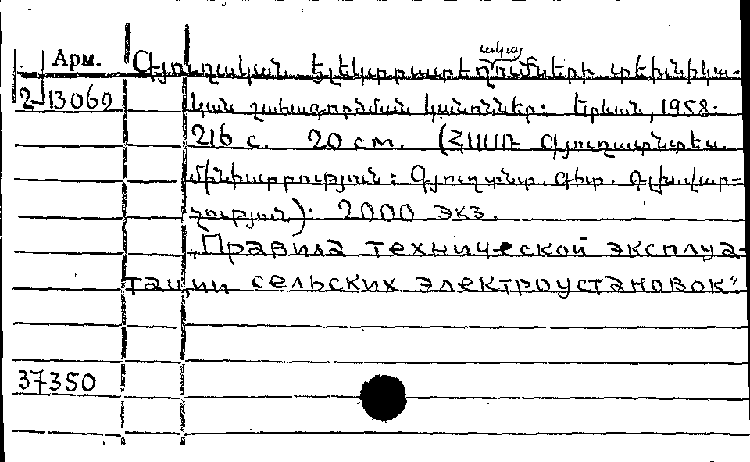 Арм.
2-13062
Գյուղական էլեկտրատեղումների տեխնիկա-
կայա
կան շահագործման կանոններ: Երևան, 1958.
216 с. 20 см. (ՀՍՍՌ Գյուղատնտես.
մինիստրություն: Գյուղտնտ. գիտ. Գլխավար-
չություն): 2000 экз.
„Правила технической эксплуа-
тации сельских электроустановок“
37350